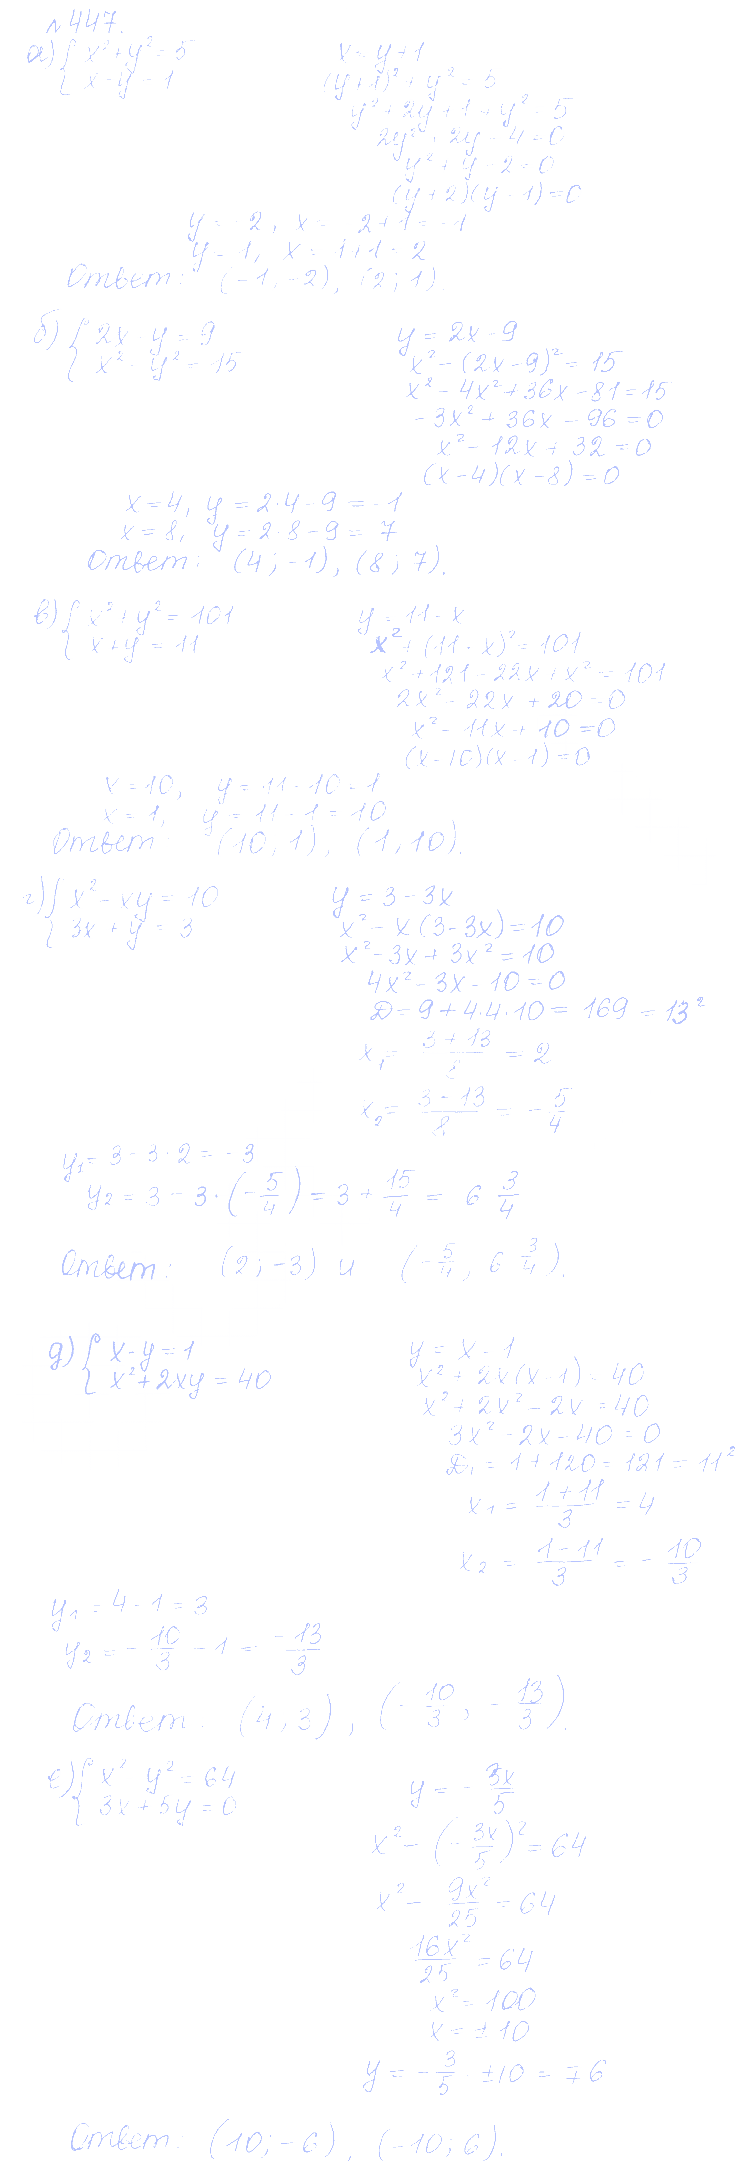 №447.
а) { x² + y² = 5
x - y = 1
x = y + 1
(y+1)² + y² = 5
y² + 2y + 1 + y² = 5
2y² + 2y - 4 = 0
y² + y - 2 = 0
(y+2)(y-1) = 0
y = -2, x = -2+1 = -1
y = 1, x = 1+1 = 2
Ответ: (-1; -2), (2; 1).
б) { 2x - y = 9
x² - y² = 15
y = 2x - 9
x² - (2x-9)² = 15
x² - 4x² + 36x - 81 = 15
-3x² + 36x - 96 = 0
x² - 12x + 32 = 0
(x-4)(x-8) = 0
x = 4, y = 2·4 - 9 = -1
x = 8, y = 2·8 - 9 = 7
Ответ: (4; -1), (8; 7).
в) { x² + y² = 101
x + y = 11
y = 11 - x
x² + (11-x)² = 101
x² + 121 - 22x + x² = 101
2x² - 22x + 20 = 0
x² - 11x + 10 = 0
(x-10)(x-1) = 0
x = 10, y = 11 - 10 = 1
x = 1, y = 11 - 1 = 10
Ответ: (10; 1), (1; 10).
г) { x² - xy = 10
3x + y = 3
y = 3 - 3x
x² - x(3-3x) = 10
x² - 3x + 3x² = 10
4x² - 3x - 10 = 0
D = 9 + 4·4·10 = 169 = 13²
x₁ = (3+13)/8 = 2
x₂ = (3-13)/8 = -5/4
y₁ = 3 - 3·2 = -3
y₂ = 3 - 3·(-5/4) = 3 + 15/4 = 6 3/4
Ответ: (2; -3) и (-5/4; 6 3/4).
д) { x - y = 1
x² + 2xy = 40
y = x - 1
x² + 2x(x-1) = 40
x² + 2x² - 2x = 40
3x² - 2x - 40 = 0
D₁ = 1 + 120 = 121 = 11²
x₁ = (1+11)/3 = 4
x₂ = (1-11)/3 = -10/3
y₁ = 4 - 1 = 3
y₂ = -10/3 - 1 = -13/3
Ответ: (4; 3), (-10/3; -13/3).
е) { x² y² = 64
3x + 5y = 0
y = -3x/5
x² - (-3x/5)² = 64
x² - 9x²/25 = 64
16x²/25 = 64
x² = 100
x = ±10
y = -3/5 · ±10 = ∓6
Ответ: (10; -6), (-10; 6).